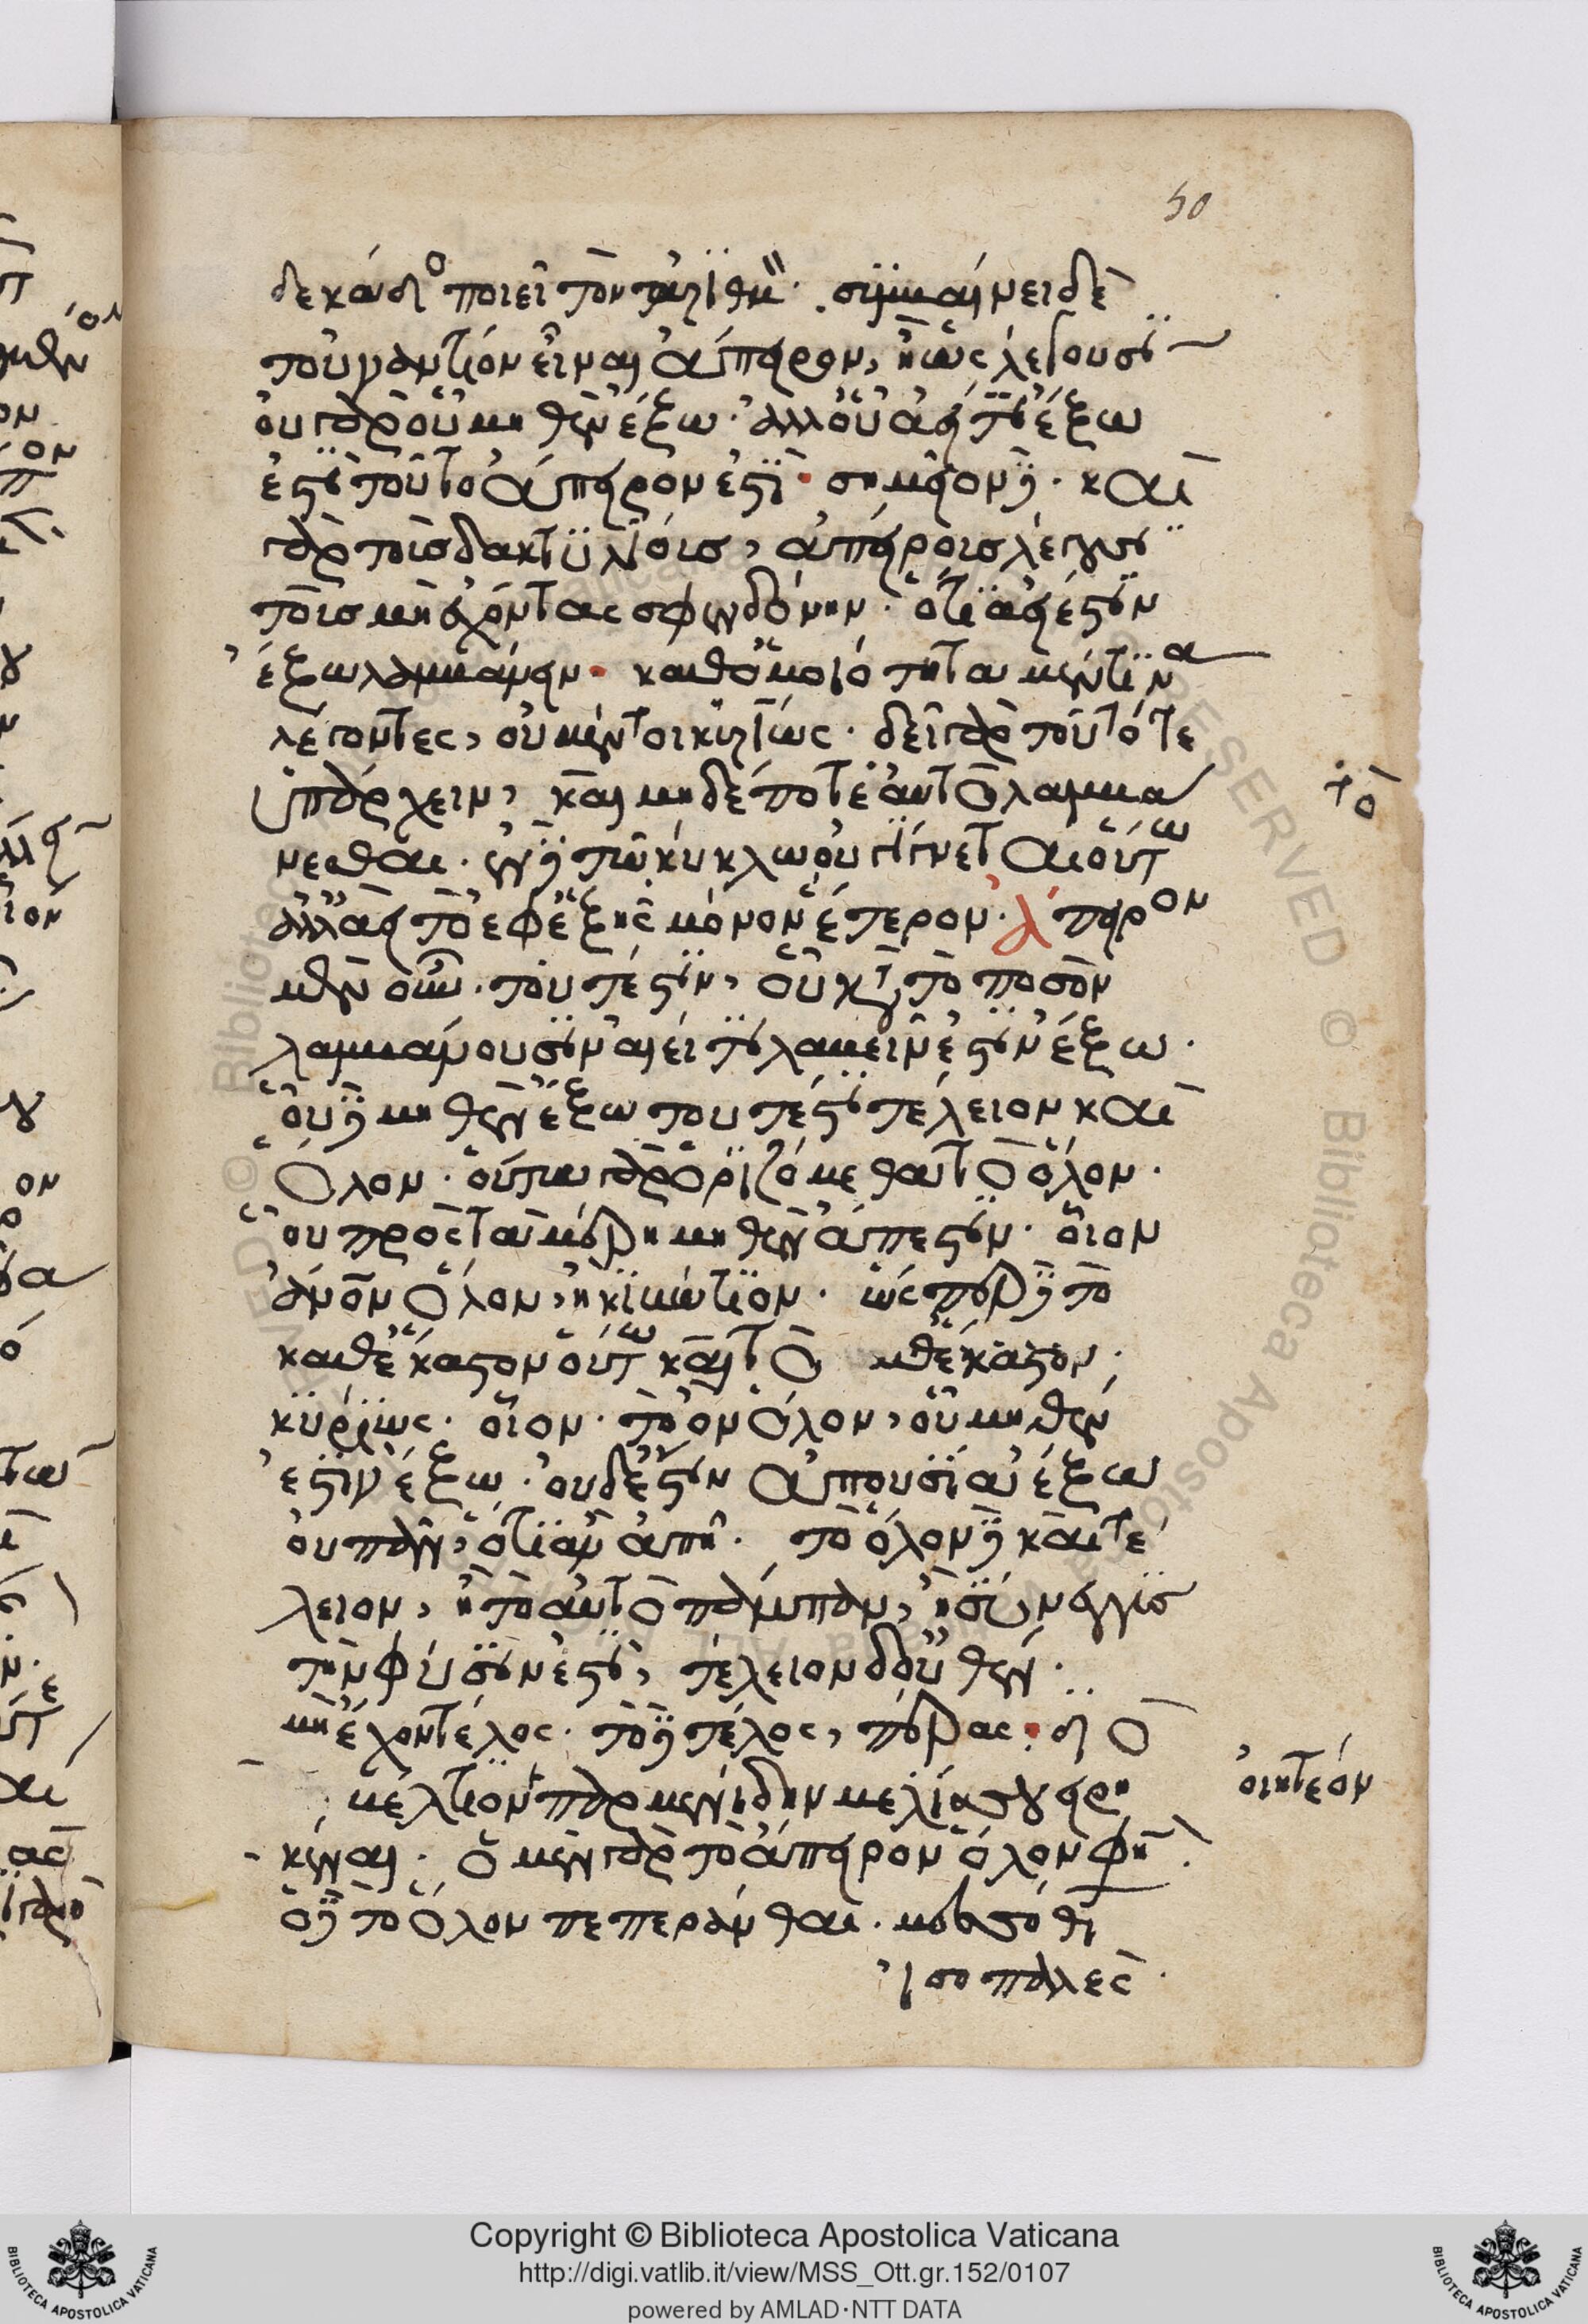 50
δεκάδος ποιεῖ τὸν ἀριθμόν. συμβαίνει δὲ
τοὐναντίον εἶναι ἄπειρον, ἢ ὡς λέγουσιν
οὐ γὰρ οὗ μηθὲν ἔξω. ἀλλ' οὗ ἀεί τι ἔξω
ἐστὶ τοῦτο ἄπειρόν ἐστι· σημεῖον δέ. καὶ
γὰρ τοὺς δακτυλίους, ἀπείρους λέγουσι
τοὺς μὴ ἔχοντας σφενδόνην. ὅτι ἀεί ἐστιν
ἔξω λαμβάνειν· καθ' ὁμοιότητα μέν τινα
λέγοντες, οὐ μέντοι κυρίως. δεῖ γὰρ τοῦτό τε
ὑπάρχειν, καὶ μηδέποτε τὸ αὐτὸ λαμβά
τὸ
νεσθαι. ἐν δὲ τῷ κύκλῳ οὐ γίνεται οὕτω
ἀλλ' ἀεὶ τὸ ἐφεξῆς μόνον ἕτερον. ἄπειρον
μὲν οὖν τοῦτ' ἔστιν, οὗ κατὰ τὸ ποσὸν
λαμβάνουσιν ἀεί τι λαβεῖν ἔστιν ἔξω.
οὗ δὲ μηθὲν ἔξω τοῦτ' ἔστι τέλειον καὶ
ὅλον. οὕτω γὰρ ὁριζόμεθα τὸ ὅλον.
οὗ πρὸς τὰ μέρη μηθὲν ἄπεστιν. οἷον
ἄνον ὅλον, ἢ κιβώτιον. ὥσπερ δὲ τὸ
καθ' ἕκαστον οὕτω καὶ τὸ καθ' ἕκαστον.
κυρίως. οἷον τὸ ὂν ὅλον, οὗ μηθέν
ἐστιν ἔξω. οὗ δέ ἐστιν ἀπουσία ἔξω
οὐ πᾶν, ὅ τι ἂν ἀπῇ. τὸ ὅλον δὲ καὶ τέ
λειον, ἢ τὸ αὐτὸ πάμπαν, ἢ σύνεγγυς
τὴν φύσιν ἐστί, τέλειον δ' οὐθὲν
μὴ ἔχον τέλος. τὸ δὲ τέλος, πέρας· διὸ
βέλτιον Παρμενίδην Μελίσσου εἰρη
οἰητέον
κέναι. ὁ μὲν γὰρ τὸ ἄπειρον ὅλον φησί.
ὁ δὲ τὸ ὅλον πεπεράνθαι. μεσσόθι
ἰσοπαλές.
Copyright © Biblioteca Apostolica Vaticana
http://digi.vatlib.it/view/MSS_Ott.gr.152/0107
powered by AMLAD·NTT DATA